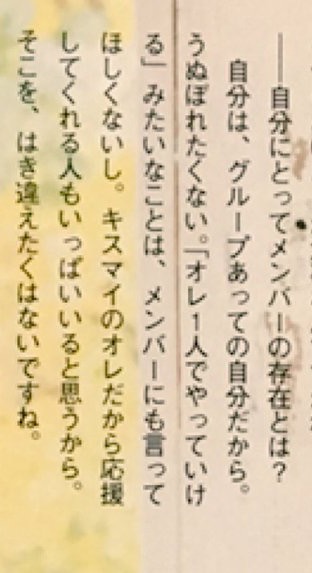 ――自分にとってメンバーの存在とは?
自分は、グループあっての自分だから。
うぬぼれたくない。「オレ1人でやっていけ
る」みたいなことは、メンバーにも言って
ほしくないし。キスマイのオレだから応援
してくれる人もいっぱいいると思うから。
そこを、はき違えたくはないですね。